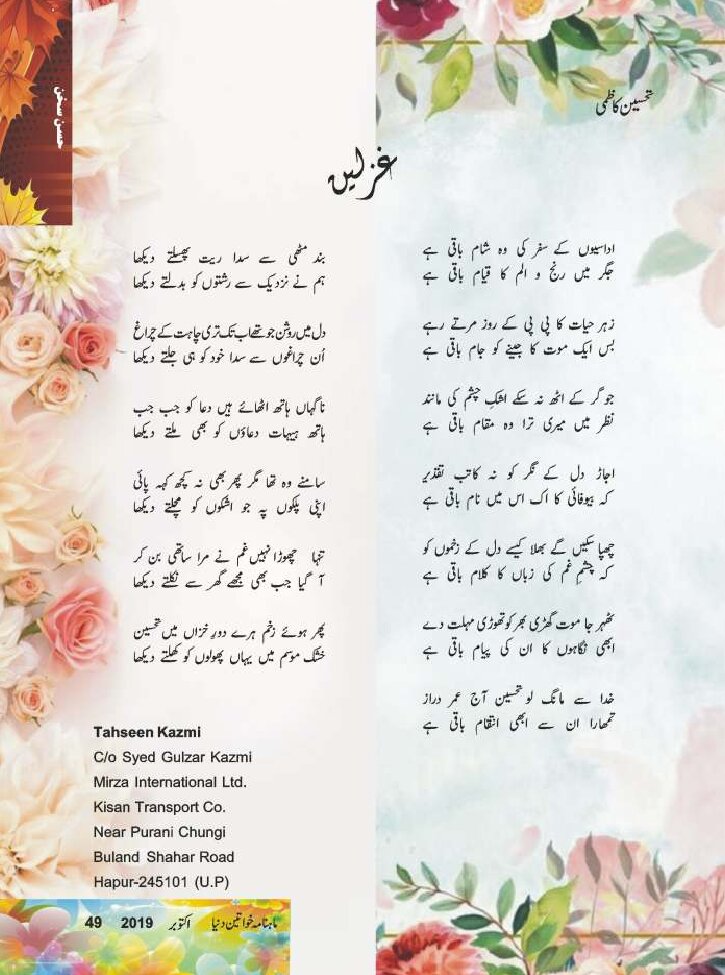 حسن سخن
تحسین کاظمی
غزلیں
اداسیوں کے سفر کی وہ شام باقی ہے
جگر میں رنج و الم کا قیام باقی ہے
زہر حیات کا پی پی کے روز مرتے رہے
بس ایک موت کا جینے کو جام باقی ہے
جو گر کے اٹھ نہ سکے اشکِ چشم کی مانند
نظر میں میری ترا وہ مقام باقی ہے
اجاڑ دل کے نگر کو نہ کاتب تقدیر
کہ بیوفائی کا اک اس میں نام باقی ہے
چھپا سکیں گے بھلا کیسے دل کے زخموں کو
کہ چشمِ غم کی زباں کا کلام باقی ہے
ٹھہر جا موت گھڑی بھر کو تھوڑی مہلت دے
ابھی نگاہوں کا ان کی پیام باقی ہے
خدا سے مانگ لو تحسین آج عمر دراز
تمھارا ان سے ابھی انتقام باقی ہے
بند مٹھی سے سدا ریت پھسلتے دیکھا
ہم نے نزدیک سے رشتوں کو بدلتے دیکھا
دل میں روشن جو تھے اب تک تری چاہت کے چراغ
اُن چراغوں سے سدا خود کو ہی جلتے دیکھا
ناگہاں ہاتھ اٹھائے ہیں دعا کو جب جب
ہاتھ ہیہات دعاؤں کو بھی ملتے دیکھا
سامنے وہ تھا مگر پھر بھی نہ کچھ کہہ پائی
اپنی پلکوں پہ جو اشکوں کو مچلتے دیکھا
تنہا چھوڑا نہیں غم نے مرا ساتھی بن کر
آ گیا جب بھی مجھے گھر سے نکلتے دیکھا
پھر ہوئے زخم ہرے دورِ خزاں میں تحسین
خشک موسم میں یہاں پھولوں کو کھلتے دیکھا
Tahseen Kazmi
C/o Syed Gulzar Kazmi
Mirza International Ltd.
Kisan Transport Co.
Near Purani Chungi
Buland Shahar Road
Hapur-245101 (U.P)
ماہنامہ خواتین دنیا اکتوبر 2019 49